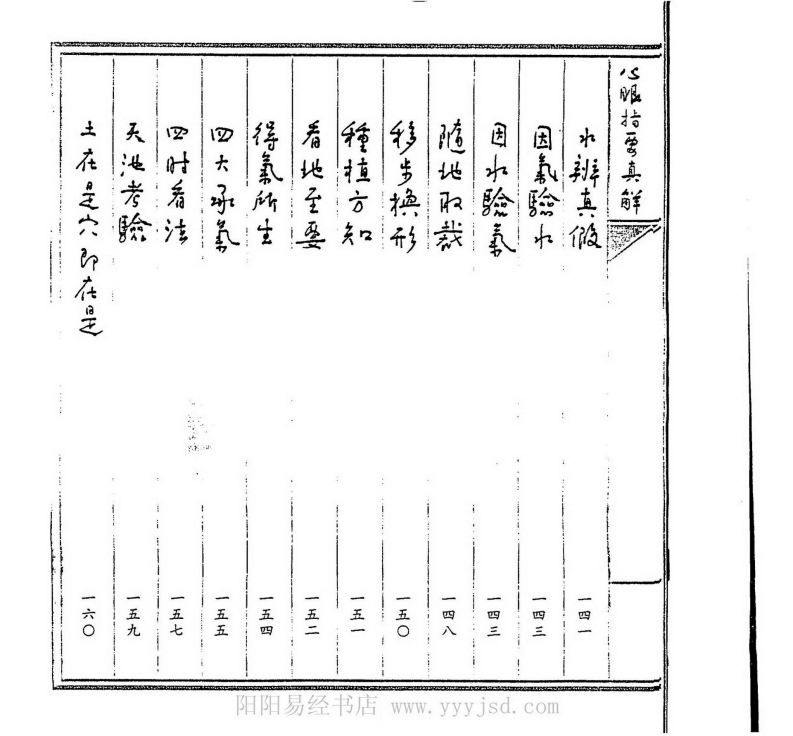 心眼指要真解
水辨真假 一四一
因氣驗水 一四三
因水驗氣 一四三
隨地取裁 一四八
移步換形 一五〇
種植方知 一五一
看地至要 一五二
得氣所生 一五四
四大承氣 一五五
四时看法 一五七
天池考驗 一五九
土在是穴即在是 一六〇
阳阳易经书店 www.yyyjsd.com